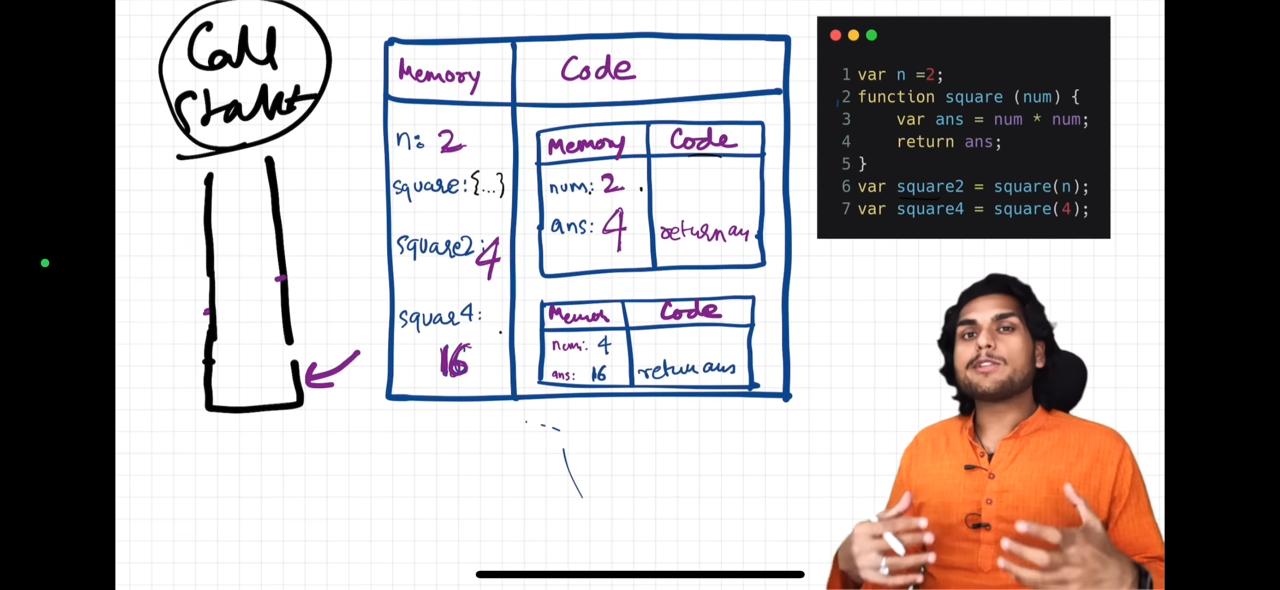 Call
Stack
Memory
Code
n: 2
square: {...}
square2: 4
squar4:
16
Memory
Code
num: 2
ans: 4
return an
Code
num: 4
ans: 16
retur ans
1 var n =2;
2 function square (num) {
3 var ans = num * num;
4 return ans;
5 }
6 var square2 = square(n);
7 var square4 = square(4);